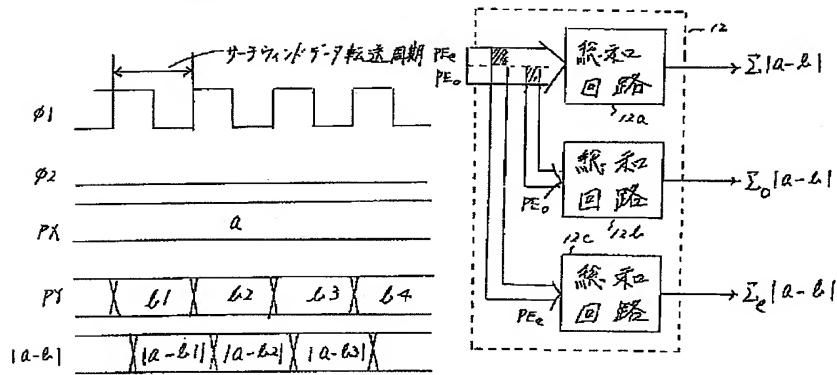 サーチウィンドデータ転送周期
φ1
φ2
PX
a
PY
b1
b2
b3
b4
|a-b|
|a-b1|
|a-b2|
|a-b3|
PEe
PEo
12
総和
回路
12a
Σ|a-b|
総和
回路
12b
PEo
Σo|a-b|
12c
総和
回路
PEe
Σe|a-b|